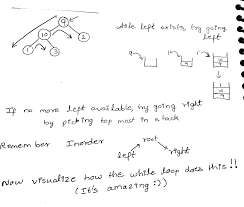 9
10
2
1
3
While left exists, try going
left
9
10
1
9
10
9
If no more left available, try going right
by picking top most in stack
Remember Inorder
root
left
right
Now visualize how the while loop does this !!
(It's amazing :))